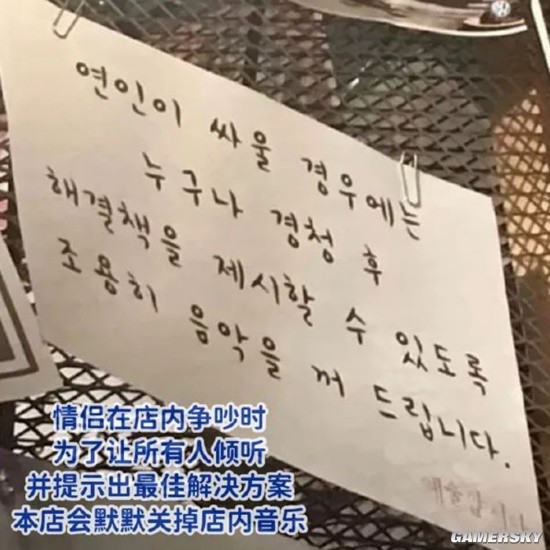 연인이 싸울 경우에는
누구나 경청 후
해결책을 제시할 수 있도록
조용히 음악을 꺼 드립니다.
情侣在店内争吵时
为了让所有人倾听
并提示出最佳解决方案
本店会默默关掉店内音乐
GAMERSKY